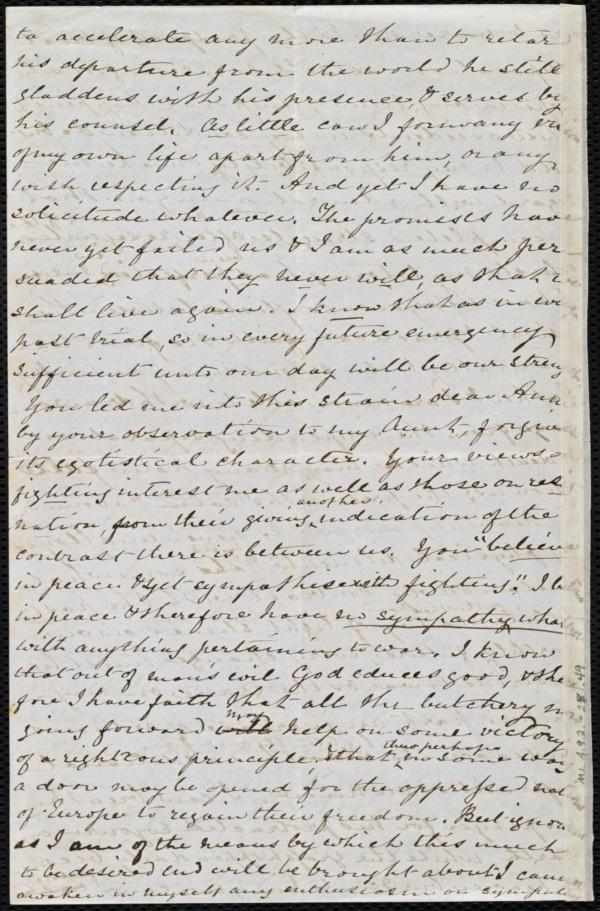 to accelerate any more than to retar
his departure from the world he still
gladdens with his presence, & serves by
his counsel. As little can I form any vi
of my own life apart from him, or any
wish respecting it. And yet I have no
solicitude whatever. The promises have
never yet failed us & I am as much per
suaded that they never will, as that I
shall live again. I know that as in
past trial, so in every future emergency
sufficient unto our day will be our streng
You led me into this strain dear Ann
by your observation to my Aunt, forgive
its egotistical character. Your views o
fighting interest me as well as those on res
nation, from their giving another indication of the
contrast there is between us. You "believe
in peace & yet sympathise with fighting". I b
in peace & therefore have no sympathy what
with anything pertaining to war. I know
that out of man's evil God educes good, & the
fore I have faith that all the butchery n
going forward may help on some victory
of a righteous principle, & that thus perhaps in some way
a door may be opened for the oppressed nat
of Europe to regain their freedom. But ignor
as I am of the means by which this much
to be desired end will be brought about I cann
awaken in myself any enthusiasm or sympath